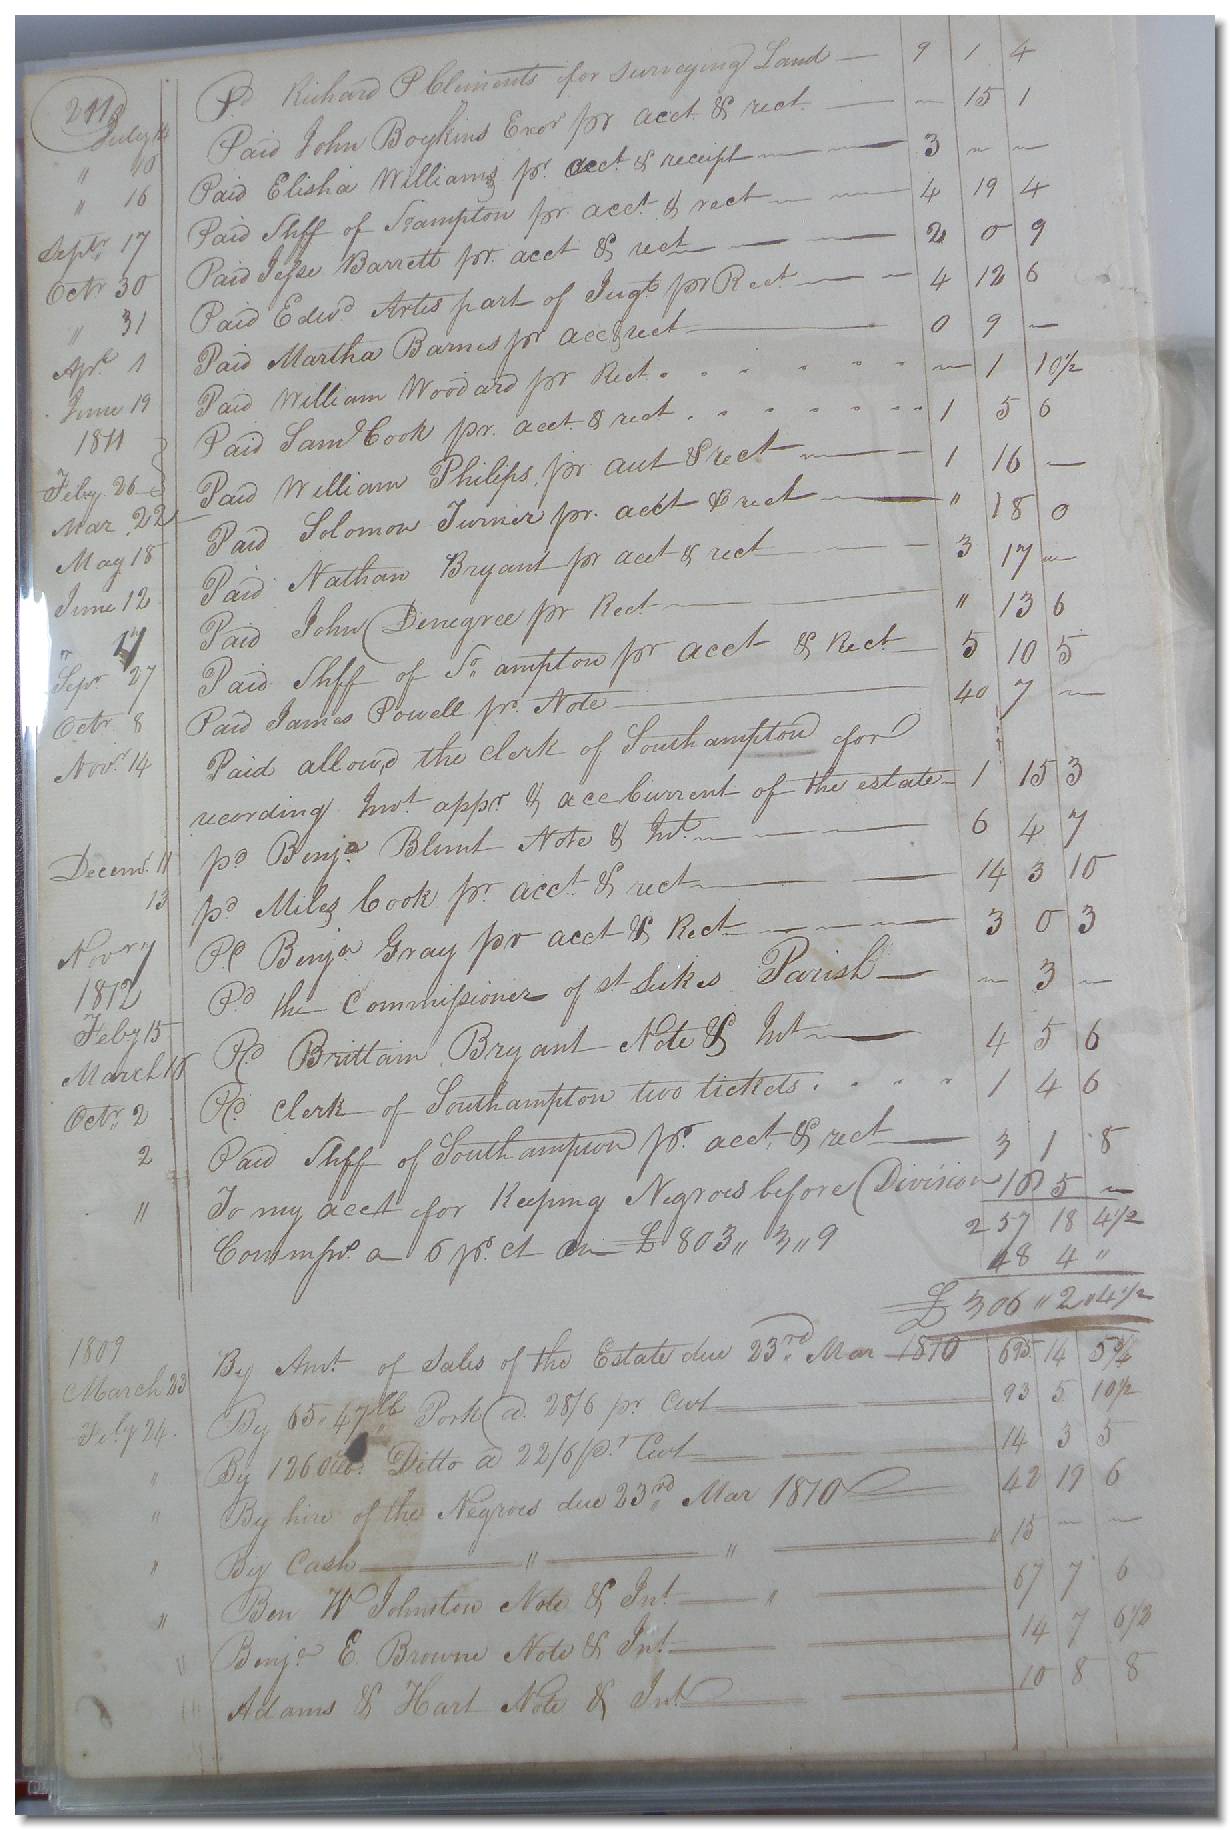 241
July 14 Pd Richard P Clements for surveying Land — 9 1 4
" 15 Paid John Boykins Exor pr acct & rect. — " 15 1
" 16 Paid Elisha Williams pr. acct. & receipt — 3 " "
Septr 17 Paid Shff of So.ampton pr. acct. & rect — 4 19 4
Octr 30 Paid Jesse Barrett pr. acct & rect — 2 0 9
" 31 Paid Edwd Artis part of Jugt pr Rect — 4 12 6
Aprl 1 Paid Martha Barnes pr acc & rect — 0 9 —
June 19 Paid William Woodard pr Rect . . . . — 1 10½
1811
Feby 26 Paid Saml Cook pr. acct. & rect . . . . 1 5 6
Mar. 22 Paid William Philips pr aut & rect — 1 16 —
May 18 Paid Solomon Turner pr. acct & rect — " 18 0
June 12 Paid Nathan Bryant pr acct & rect — 3 17 —
" 17 Paid John Denegree pr Rect — " 13 6
Sepr 27 Paid Shff of So.ampton pr acct & Rect — 5 10 5
Octr 8 Paid James Powell pr. Note — 40 7 —
Novr. 14 Paid allowd the clerk of Southampton for
recording Invt. appr. & acc Current of the estate — 1 15 3
Decemr. 11 pd Benja. Blunt Note & Int. — 6 4 7
13 pd Miles Cook pr. acct. & rect — 14 3 10
Novr 7 Pd Benja Gray pr acct & Rect — 3 0 3
1812
Feby 15 Pd the Commissioner of St Lukes Parish — — 3 —
March 16 Pd Brittain Bryant Note & Int — 4 5 6
Octr. 2 Pd. clerk of Southampton two tickets . . . . 1 4 6
2 Paid Shff of Southampton pr. acct. & rect — 3 1 8
" To my acct for Keeping Negroes before Division 10 5 —
257 18 4½
Commsn. a 6 pr. ct on £803" 3"9 48 4 "
£306 " 2 "4½
1809
March 23 By Amt. of sales of the Estate due 23rd. Mar 1810 695 14 5¾
Feby 24. By 65.47 lb Pork @ 28/6 pr Cwt — 93 5 10½
" By 1260 lb. Ditto a 22/6 pr Cwt — 14 3 5
" By hire of the Negroes due 23rd Mar 1810 — 42 19 6
" By Cash — " — " — " 15 — —
" Ben W Johnston Note & Int — " — 67 7 6
" Benja. E. Browne Note & Int — 14 7 6½
" Adams & Hart Note & Int — 10 8 8